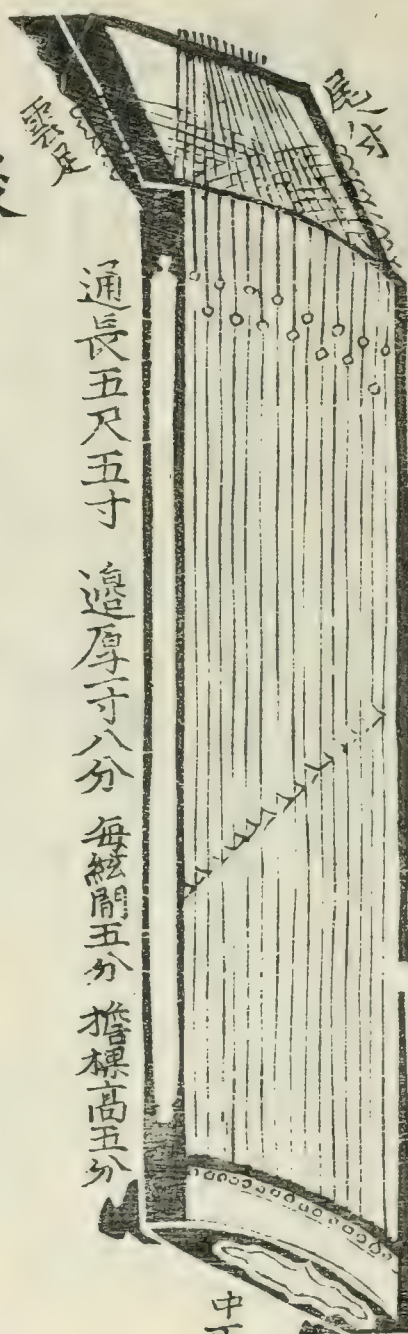 尾分
雲足
通長五尺五寸 邉厚一寸八分 每絃間五分 擔楳高五分
中